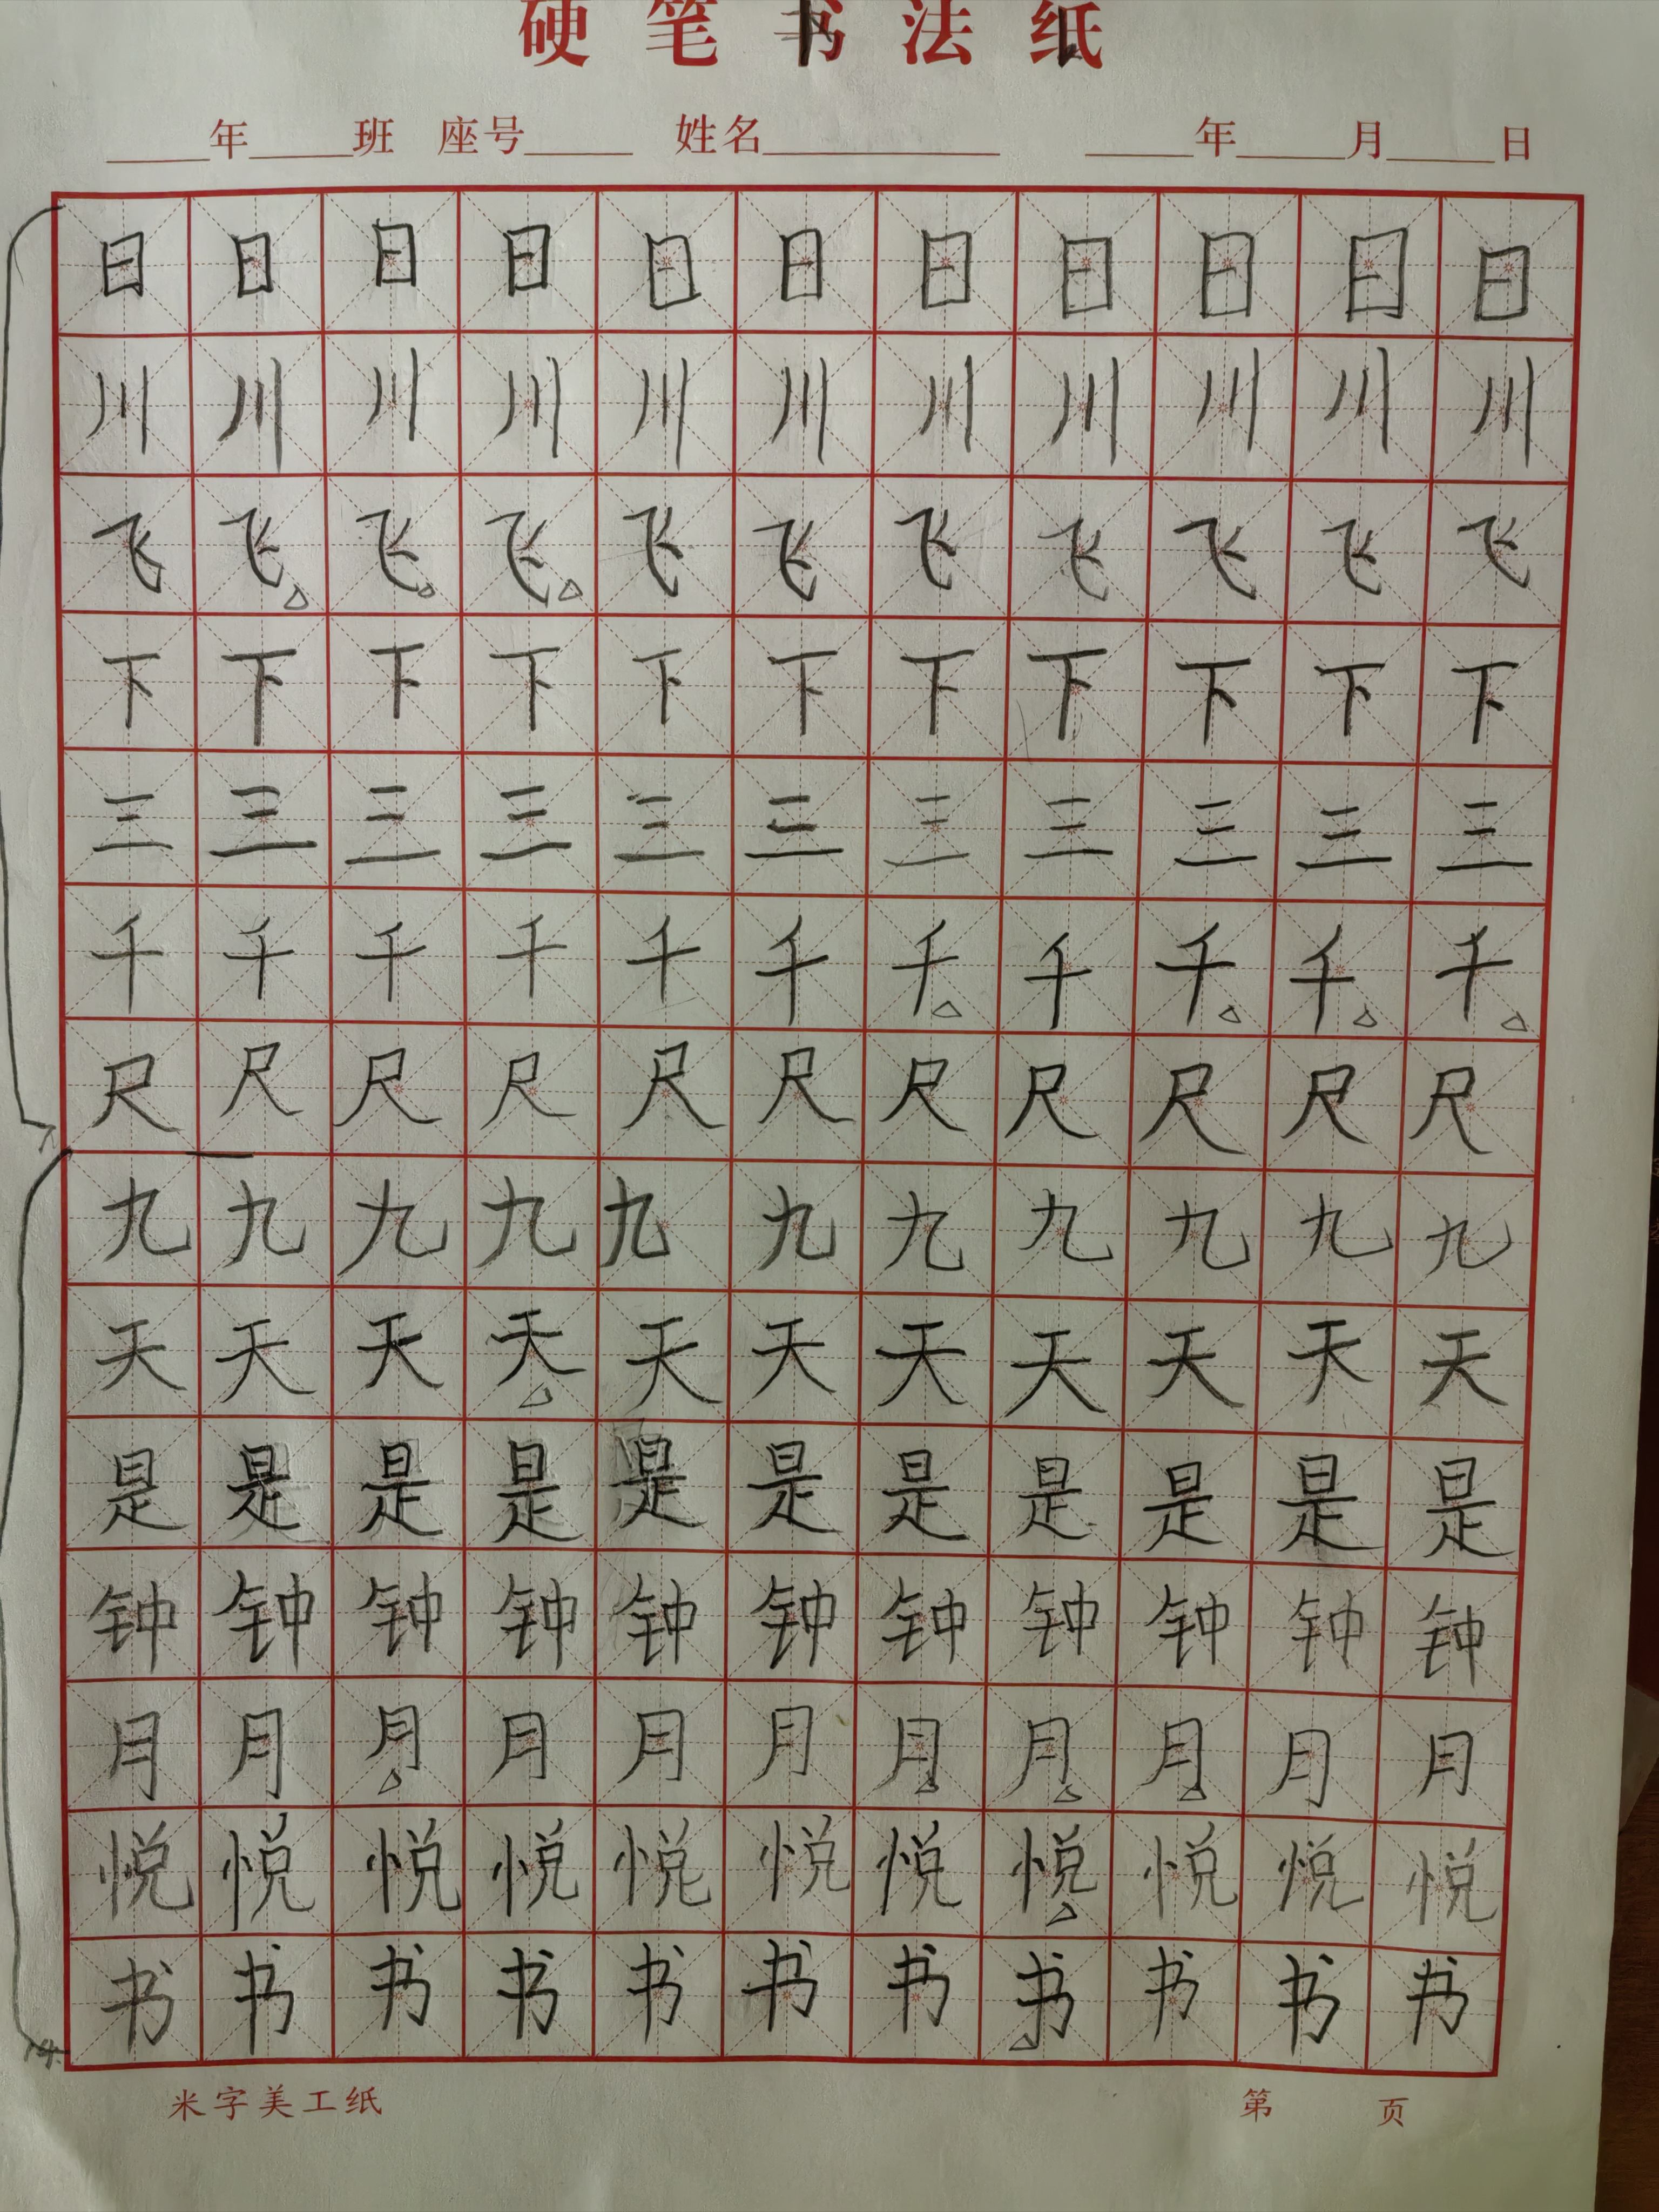 硬笔书法纸
年 班 座号 姓名 年 月 日
日日日日日日日日日日日
川川川川川川川川川川川
飞飞飞飞飞飞飞飞飞飞飞
下下下下下下下下下下下
三三三三三三三三三三三
千千千千千千千千千千千
尺尺尺尺尺尺尺尺尺尺尺
九九九九九九九九九九九
天天天天天天天天天天天
是是是是是是是是是是是
钟钟钟钟钟钟钟钟钟钟钟
月月月月月月月月月月月
悦悦悦悦悦悦悦悦悦悦悦
书书书书书书书书书书书
米字美工纸 第 页